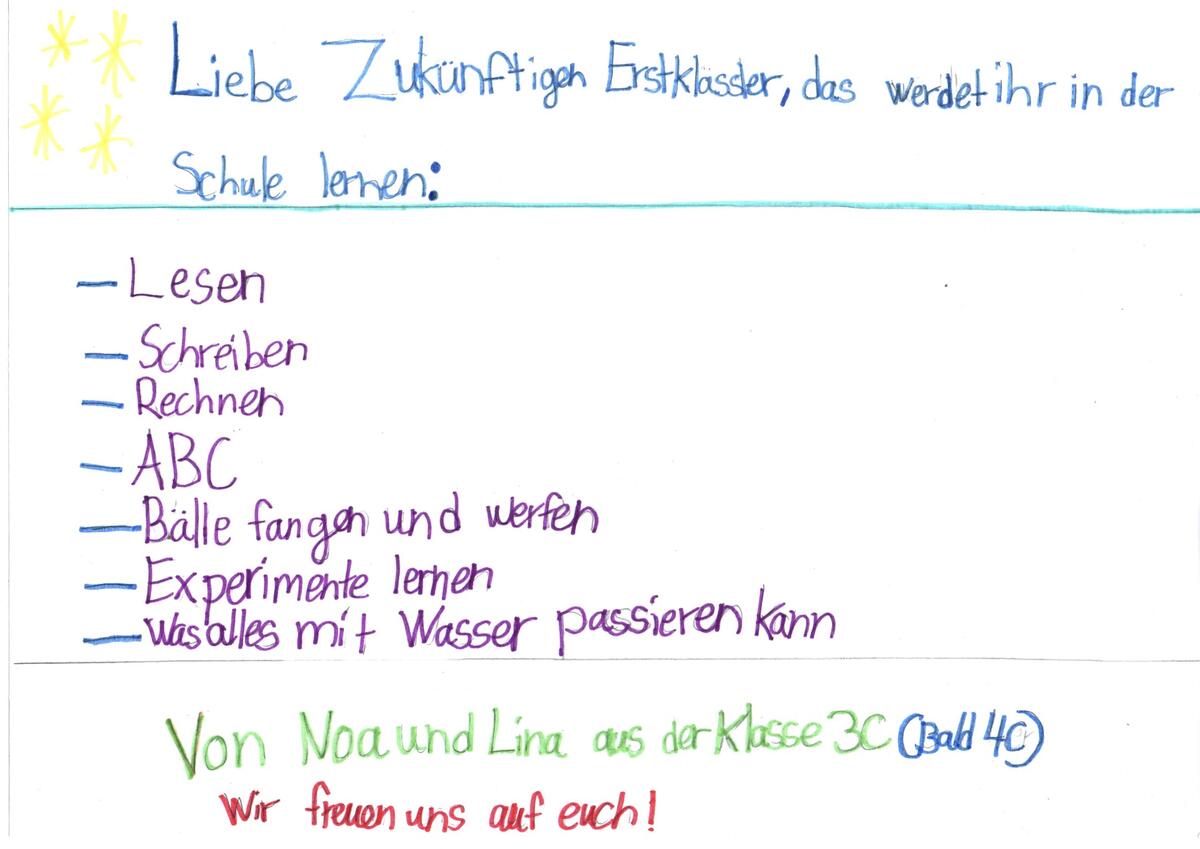 Liebe Zukünftigen Erstklässler, das werdet ihr in der
Schule lernen:
— Lesen
— Schreiben
— Rechnen
— ABC
— Bälle fangen und werfen
— Experimente lernen
— Was alles mit Wasser passieren kann
Von Noa und Lina aus der Klasse 3C (Bald 4C)
Wir freuen uns auf euch!